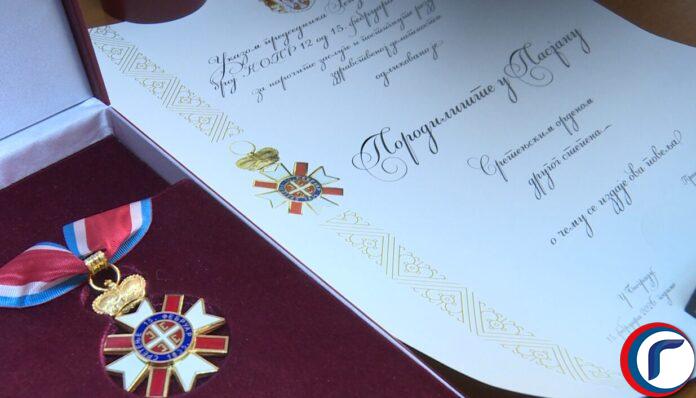 Указом председника
број КОПР 12 од 15. фебруара
за нарочите заслуге и постигнуте
здравственој делатности
одликовано је
Породилиште у Пасјану
Сретењским орденом
другог степена
о чему се издаје ова повеља
у Београду
15. фебруар
СРЕТЕЊЕ